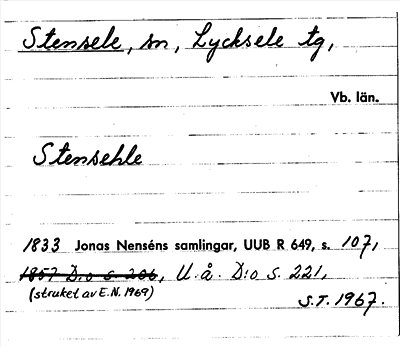 Stensele, sn, Lycksele tg,
Vb. län.
Stensehle
1833 Jonas Nenséns samlingar, UUB R 649, s. 107,
1857 D:o s. 206, U.å. D:o s. 221,
(struket av E.N. 1969)
S.T. 1967.